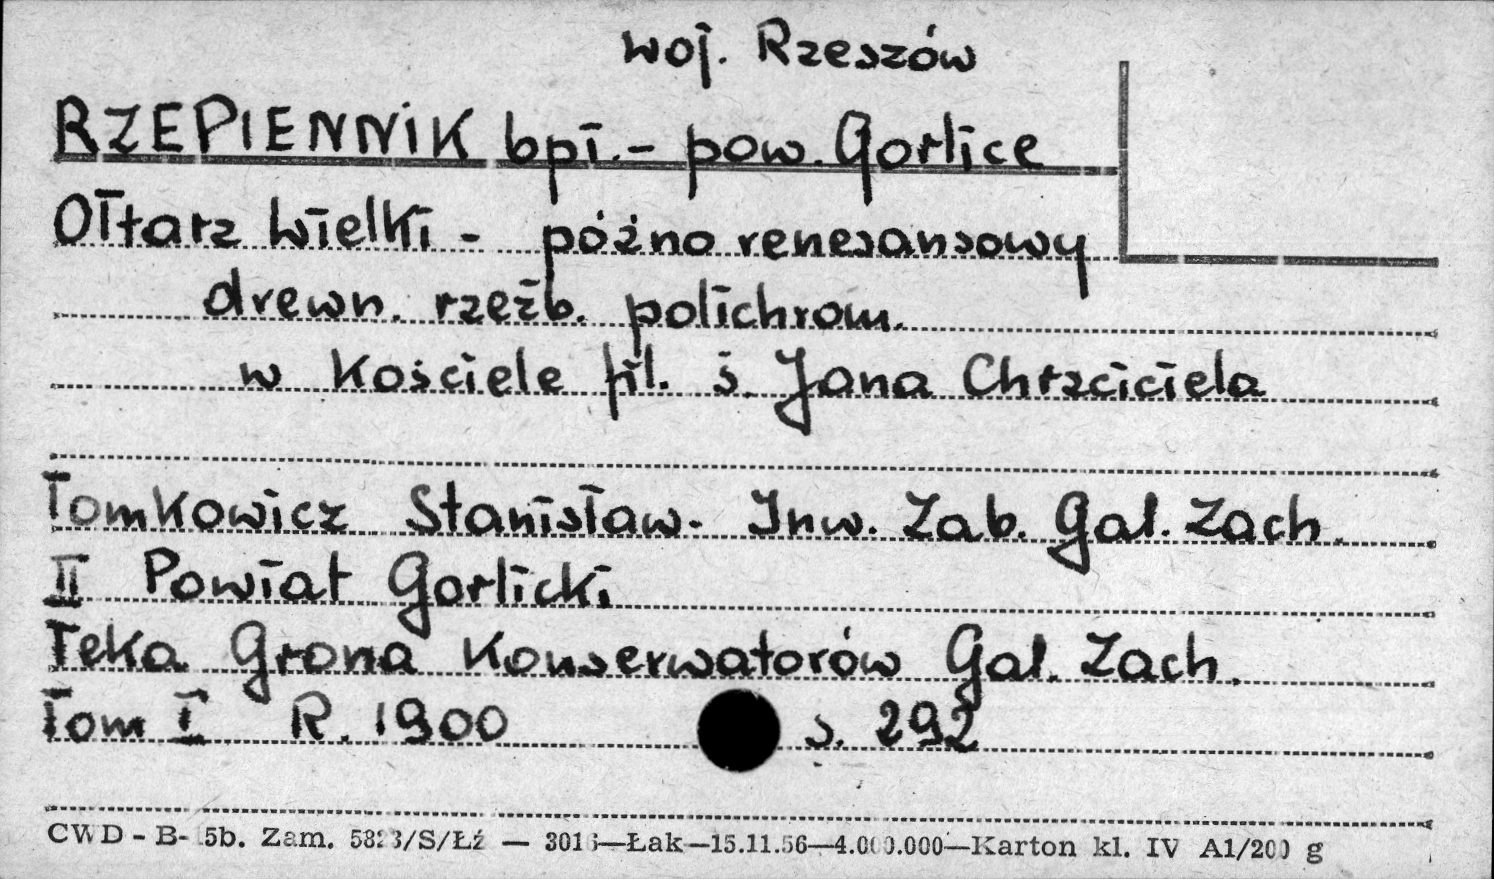 woj. Rzeszów
RZEPIENNIK bpi. - pow. Gorlice
Ołtarz Wielki - późno renesansowy
drewn. rzeźb. polichrom.
w Kościele fil. ś. Jana Chrzciciela
Tomkowicz Stanisław. Inw. Zab. Gal. Zach.
II Powiat Gorlicki
Teka Grona Konserwatorów Gal. Zach.
Tom I R. 1900 s. 292
CWD - B- 5b. Zam. 5823/S/Łź — 3016—Łak—15.11.56—4.000.000—Karton kl. IV A1/200 g